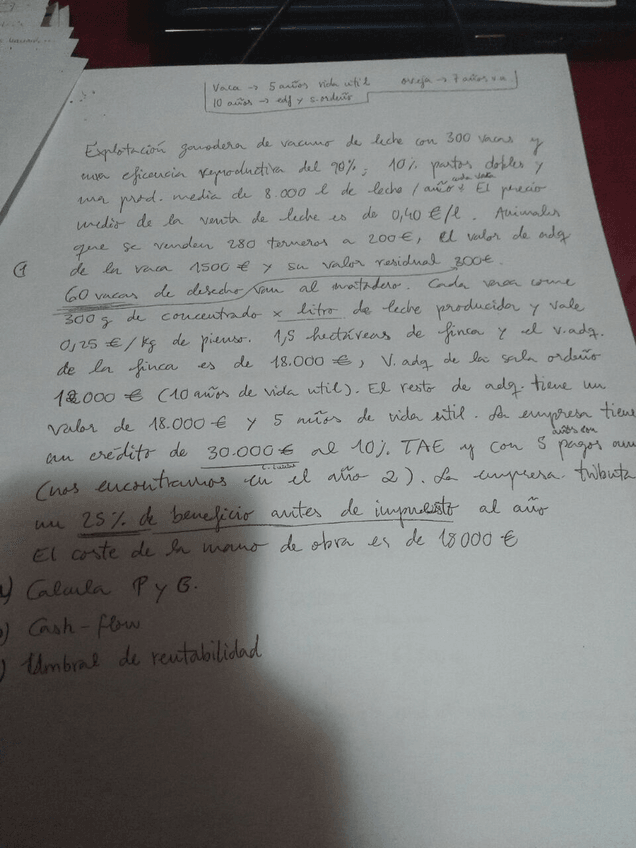 Vaca → 5 años vida util oveja → 7 años v.u
10 años → edf y s.ordeño
Explotación ganadera de vacuno de leche con 300 vacas y
una eficencia reproductiva del 90%; 10% partos dobles y
una prod. media de 8.000 l de leche / año x cada vaca El precio
medio de la venta de leche es de 0,40 €/l. Animales
que se venden 280 terneros a 200€, el valor de adq
① de la vaca 1500 € y su valor residual 300€.
60 vacas de desecho van al matadero. Cada vaca come
300 g de concentrado x litro de leche producida y vale
0,25 €/kg de pienso. 1,5 hectáreas de finca y el v.adq.
de la finca es de 18.000 €, V. adq de la sala ordeño
12.000 € (10 años de vida util). El resto de adq. tiene un
valor de 18.000 € y 5 años de vida util. La empresa tiene
un crédito de 30.000 € al 10% TAE y con 5 pagos anu
años con
(nos encontramos en el año 2). La empresa tributa
un 25% de beneficio antes de impuesto al año
El coste de la mano de obra es de 18000 €
) Calcula P y G.
) Cash-flow
) Umbral de rentabilidad